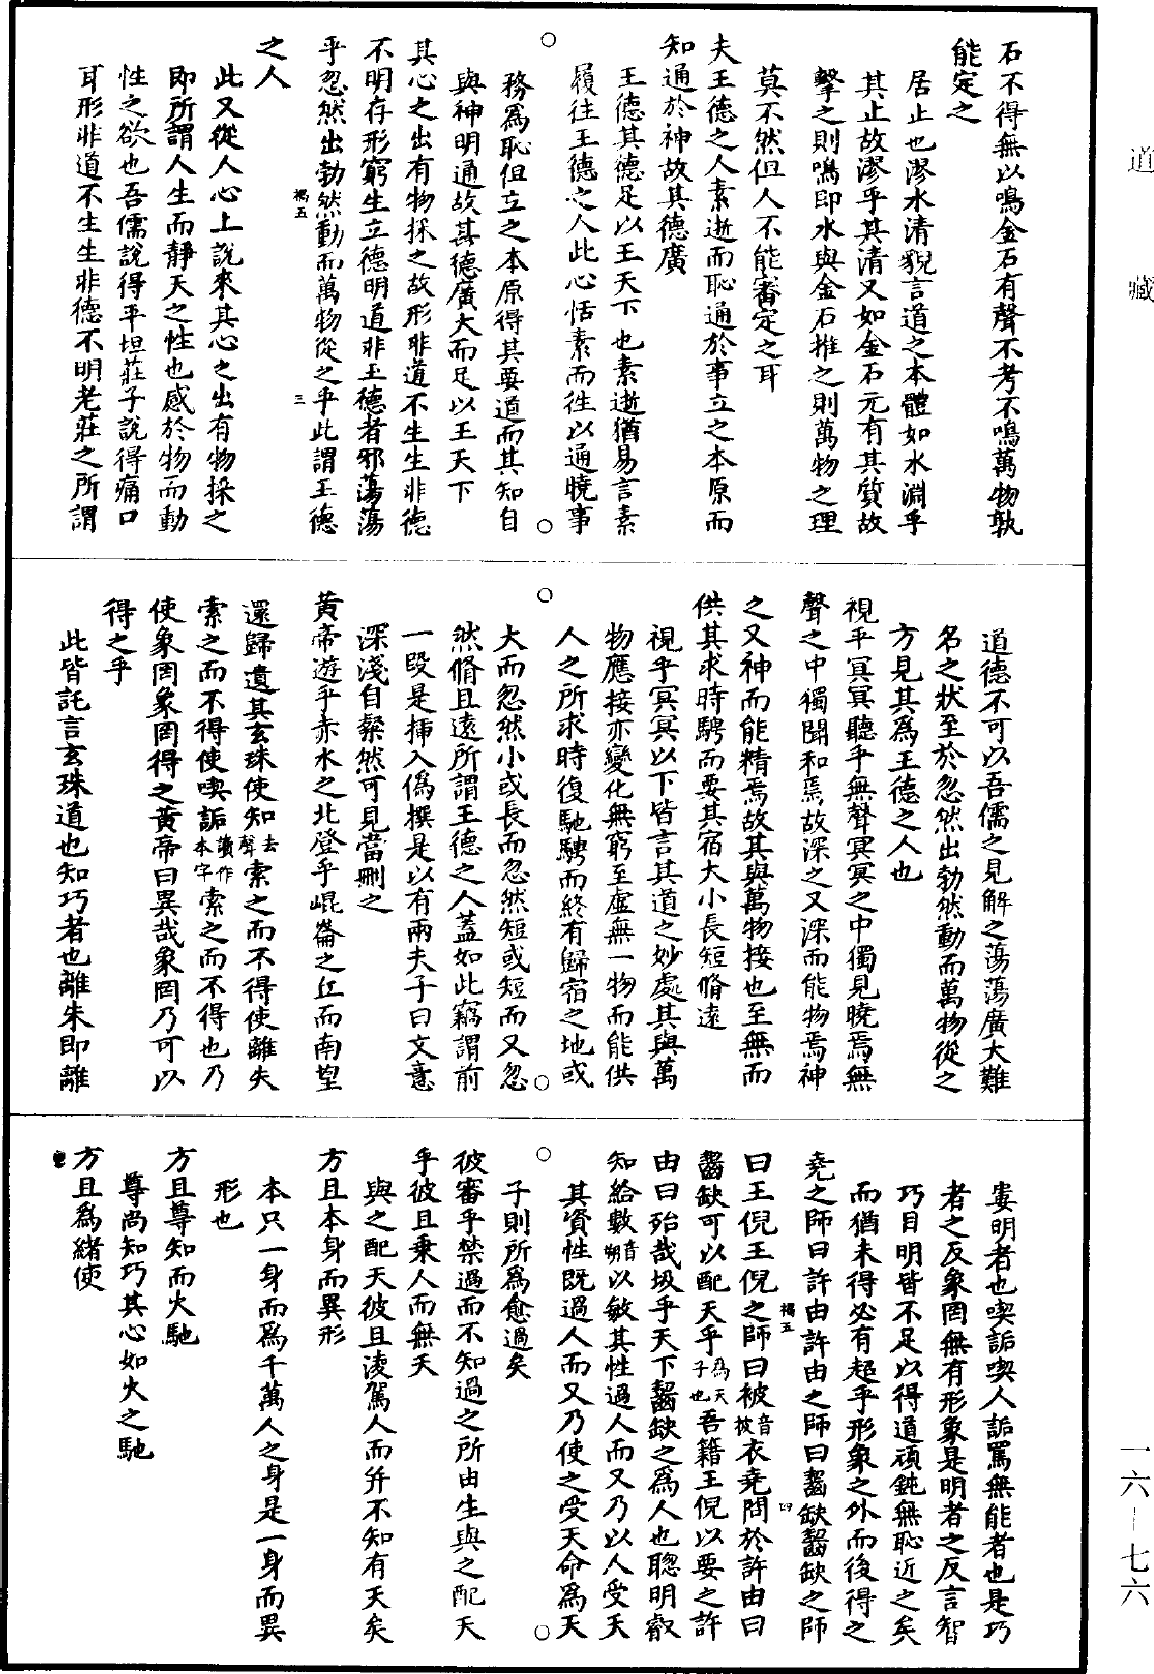 道藏
石不得無以鳴金石有聲不考不鳴萬物孰
能定之
居止也漻水清貌言道之本體如水淵乎
其止故漻乎其清又如金石元有其質故
擊之則鳴即水與金石推之則萬物之理
莫不然但人不能審定之耳
夫王德之人素逝而恥通於事立之本原而
知通於神故其德廣
王德其德足以王天下也素逝猶易言素
履往王德之人此心恬素而往以通曉事
務爲恥但立之本原得其要道而其知自
與神明通故其德廣大而足以王天下
其心之出有物採之故形非道不生生非德
不明存形窮生立德明道非王德者邪蕩蕩
乎忽然出勃然動而萬物從之乎此謂王德
之人
此又從人心上說來其心之出有物採之
即所謂人生而靜天之性也感於物而動
性之欲也吾儒說得平坦莊子說得痛口
耳形非道不生生非德不明老莊之所謂
道德不可以吾儒之見解之蕩蕩廣大難
名之狀至於忽然出勃然動而萬物從之
方見其爲王德之人也
視乎冥冥聽乎無聲冥冥之中獨見曉焉無
聲之中獨聞和焉故深之又深而能物焉神
之又神而能精焉故其與萬物接也至無而
供其求時騁而要其宿大小長短脩遠
視乎冥冥以下皆言其道之妙處其與萬
物應接亦變化無窮至虛無一物而能供
人之所求時復馳騁而終有歸宿之地或
大而忽然小或長而忽然短或短而又忽
然脩且遠所謂王德之人蓋如此竊謂前
一段是揷入僞撰是以有兩夫子曰文意
深淺自粲然可見當刪之
黃帝遊乎赤水之北登乎崐崙之丘而南望
還歸遺其玄珠使知去聲索之而不得使離朱
索之而不得使喫詬讀作本字索之而不得也乃
使象罔象罔得之黃帝曰異哉象罔乃可以
得之乎
此皆託言玄珠道也知巧者也離朱即離
婁明者也喫詬喫人詬罵無能者也是巧
者之反象罔無有形象是明者之反言智
巧目明皆不足以得道頑鈍無恥近之矣
而猶未得必有超乎形象之外而後得之
堯之師曰許由許由之師曰齧缺齧缺之師
曰王倪王倪之師曰被音披衣堯問於許由曰
齧缺可以配天乎爲天子也吾籍王倪以要之許
由曰殆哉圾乎天下齧缺之爲人也聰明叡
知給數音朔以敏其性過人而又乃以人受天
其資性既過人而又乃使之受天命爲天
子則所爲愈過矣
彼審乎禁過而不知過之所由生與之配天
乎彼且乘人而無天
與之配天彼且淩駕人而并不知有天矣
方且本身而異形
本只一身而爲千萬人之身是一身而異
形也
方且尊知而火馳
尊尚知巧其心如火之馳
方且爲緒使
一六—七六